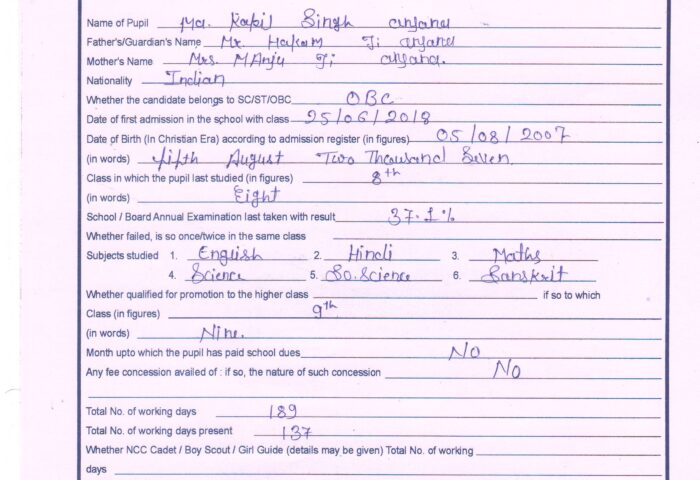 Name of Pupil Ma. Kapil Singh anjana
Father's/Guardian's Name Mr. Hakam Ji anjana
Mother's Name Mrs. MAnju Ji anjana.
Nationality Indian
Whether the candidate belongs to SC/ST/OBC OBC
Date of first admission in the school with class 25/06/2018
Date of Birth (In Christian Era) according to admission register (in figures) 05/08/2007
(in words) fifth August Two Thousand Seven
Class in which the pupil last studied (in figures) 8th
(in words) Eight
School / Board Annual Examination last taken with result 37.1%
Whether failed, is so once/twice in the same class
Subjects studied 1. English 2. Hindi 3. Maths
4. Science 5. So.Science 6. Sanskrit
Whether qualified for promotion to the higher class if so to which
Class (in figures) 9th
(in words) Nine.
Month upto which the pupil has paid school dues No
Any fee concession availed of : if so, the nature of such concession No
Total No. of working days 189
Total No. of working days present 137
Whether NCC Cadet / Boy Scout / Girl Guide (details may be given) Total No. of working
days